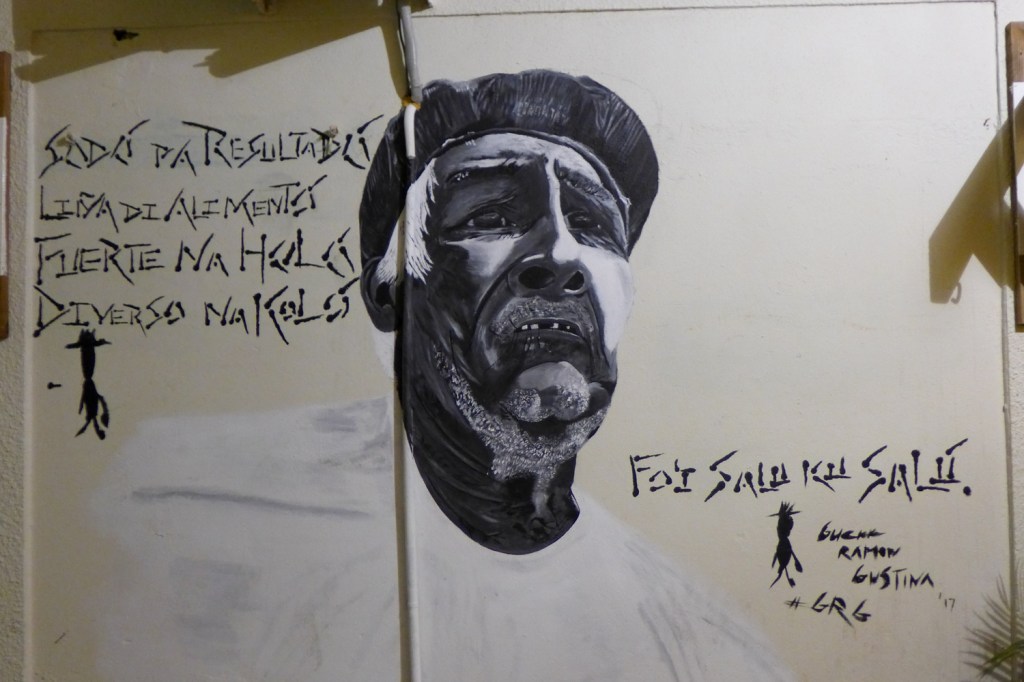 SODÓ PA RESULTADÓ
LIÑA DI ALIMENTÓ
FUERTE NA HULÓ
DIVERSO NA KOLÓ
FOI SALU KU SALÚ.
GUENE
RAMON
GUSTINA '17
#GRG